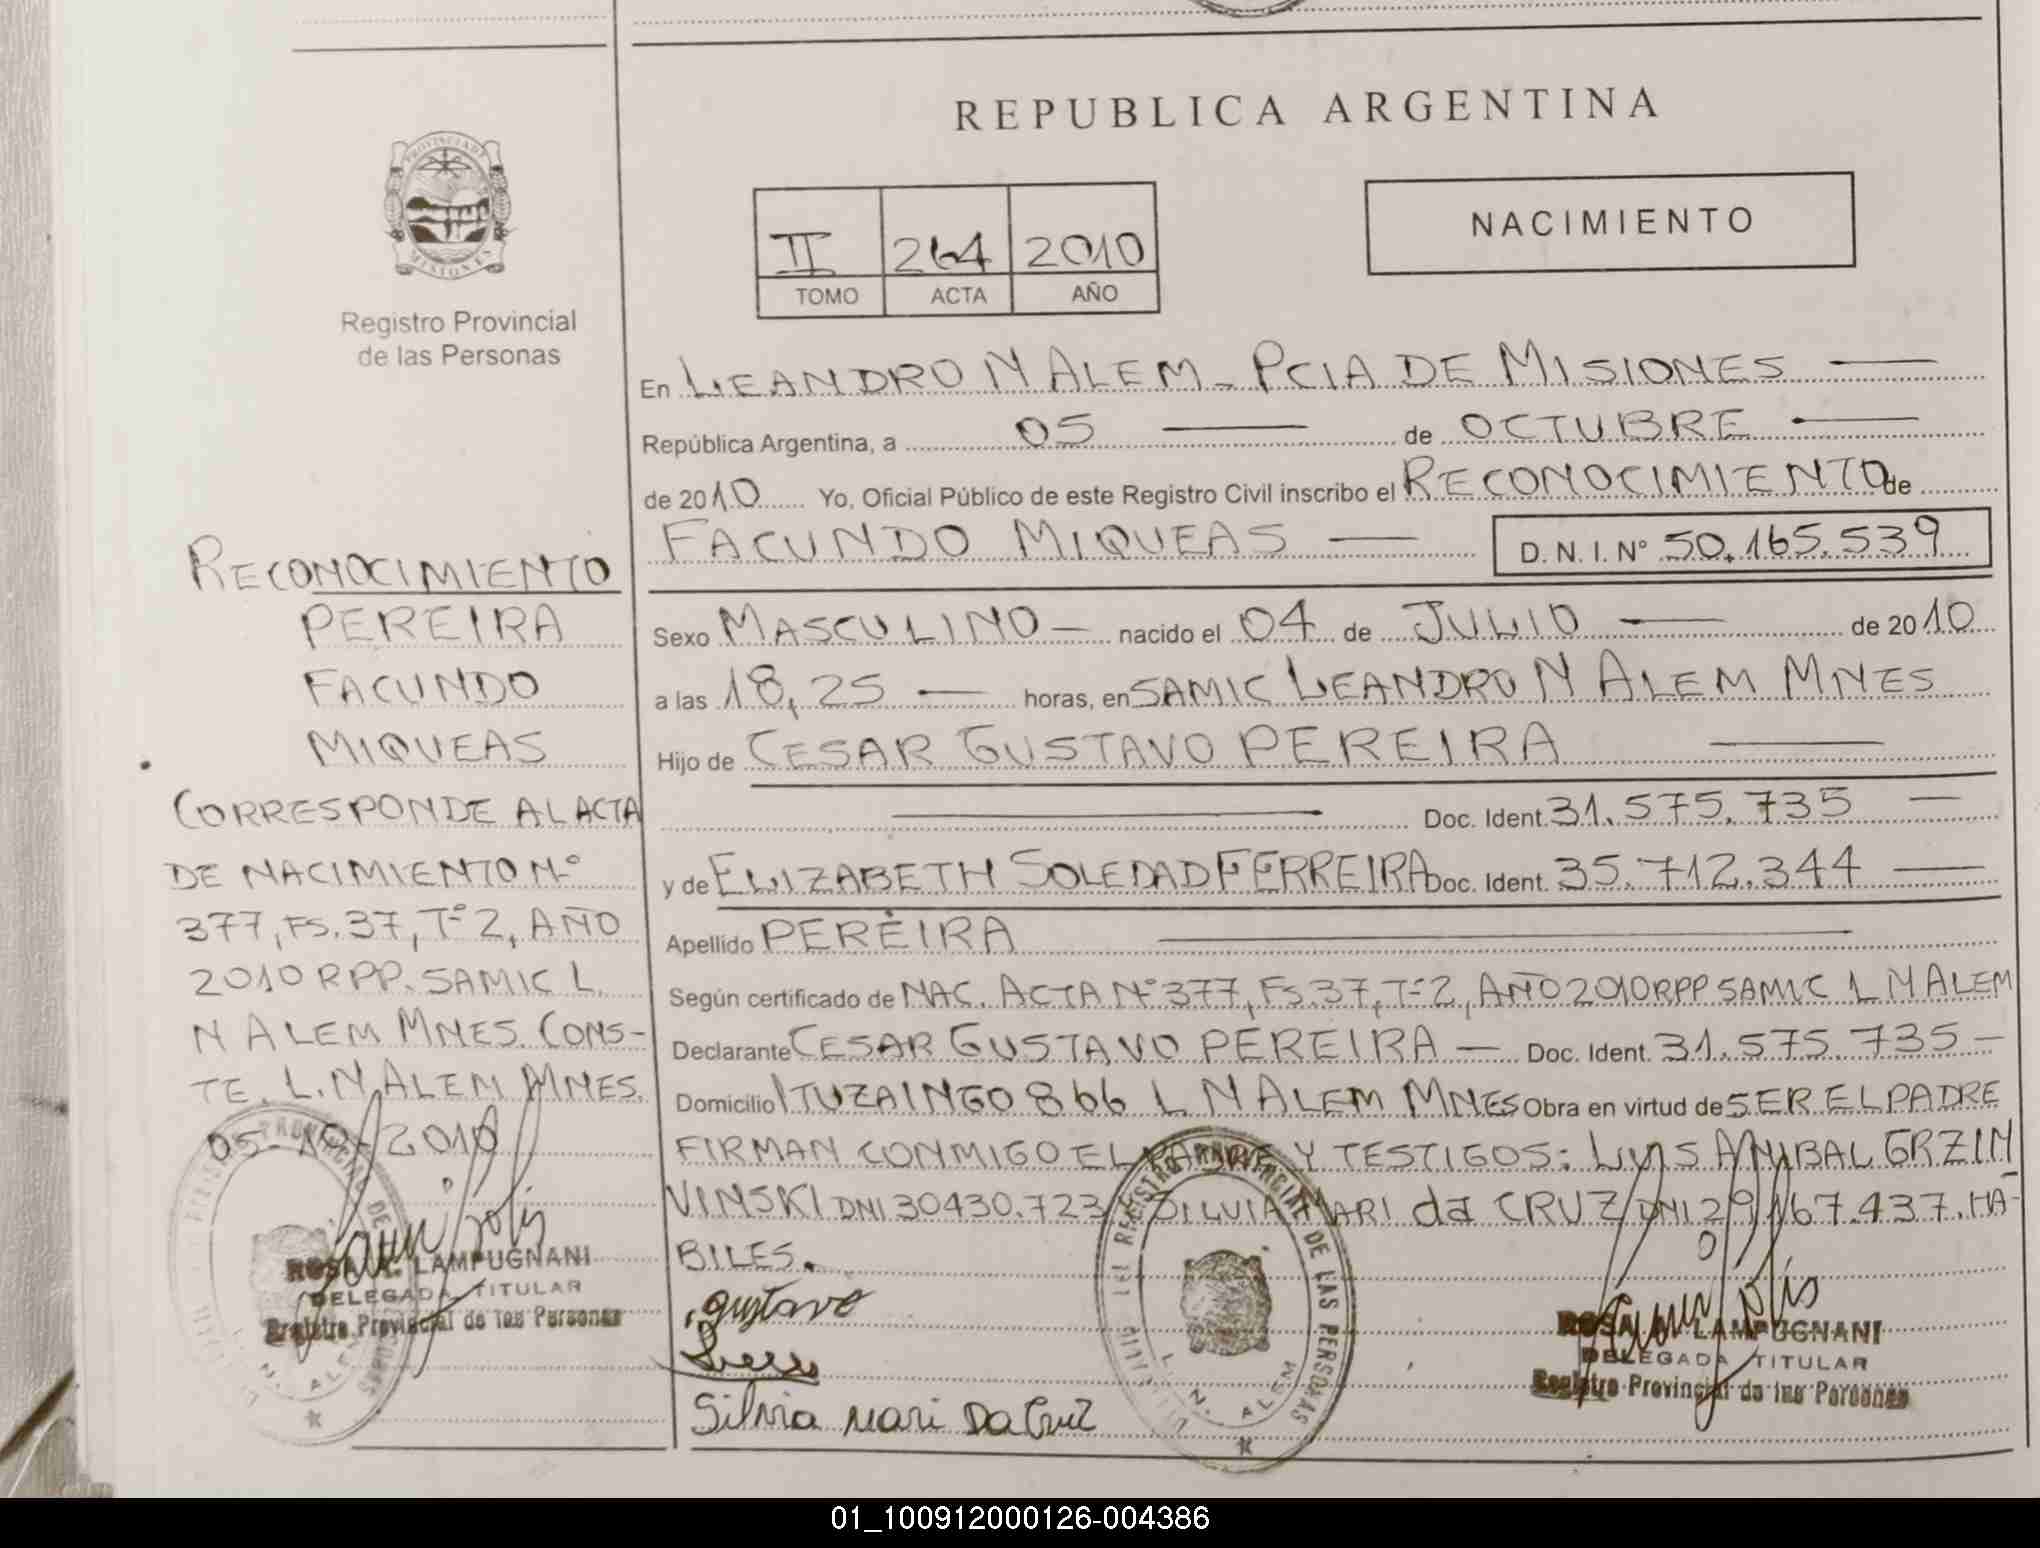 REPUBLICA ARGENTINA
PROVINCIA DE
MISIONES
Registro Provincial
de las Personas
II 264 2010
TOMO ACTA AÑO
NACIMIENTO
En LEANDRO N ALEM - PCIA DE MISIONES
República Argentina, a 05 de OCTUBRE
de 2010 Yo, Oficial Público de este Registro Civil inscribo el RECONOCIMIENTO de
FACUNDO MIQUEAS D.N.I. Nº 50.165.539
Sexo MASCULINO nacido el 04 de JULIO de 2010
a las 18,25 horas, en SAMIC LEANDRO N ALEM MNES
Hijo de CESAR GUSTAVO PEREIRA
Doc. Ident. 31.575.735
y de ELIZABETH SOLEDAD FERREIRA Doc. Ident. 35.712.344
Apellido PEREIRA
Según certificado de NAC. ACTA Nº 377, FS.37, Tº 2, AÑO 2010 RPP SAMIC L N ALEM
Declarante CESAR GUSTAVO PEREIRA Doc. Ident. 31.575.735
Domicilio ITUZAINGO 866 L N ALEM MNES Obra en virtud de SER EL PADRE
FIRMAN CONMIGO EL PADRE Y TESTIGOS: LUIS ANIBAL GRZIN
VINSKI DNI 30430.723 SILVIA MARI da CRUZ DNI 29.167.437. HA-
BILES.
gustavo
Silvia Mari Da Cruz
REGISTRO PROVINCIAL DE LAS PERSONAS
L. N. ALEM
ROSA LAMPUGNANI
DELEGADA TITULAR
Registro Provincial de las Personas
RECONOCIMIENTO
PEREIRA
FACUNDO
MIQUEAS
CORRESPONDE AL ACTA
DE NACIMIENTO Nº
377, FS.37, Tº 2, AÑO
2010 RPP. SAMIC L.
N ALEM MNES. CONS-
TE. L. N ALEM MNES.
05-10-2010
ROSA LAMPUGNANI
DELEGADA TITULAR
Registro Provincial de las Personas
01_100912000126-004386